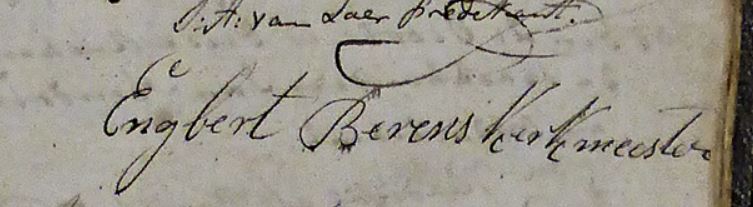 J: A: van Laer Predikant.
Engbert Berens Kerkmeester